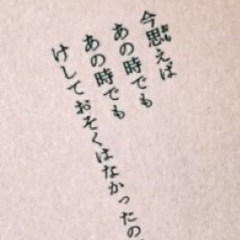 今思えば
あの時でも
あの時でも
けしておそくはなかったの